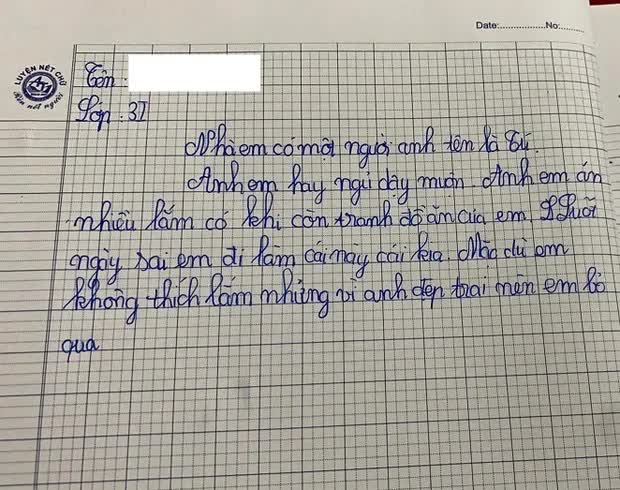 Date:..................No:.........
LUYỆN NÉT CHỮ
Rèn nết người
Tên :
Lớp : 3I
Nhà em có một người anh tên là Tú.
Anh em hay ngủ dậy muộn. Anh em ăn
nhiều lắm có khi còn tranh đồ ăn của em. Suốt
ngày sai em đi làm cái này cái kia. Mặc dù em
không thích lắm nhưng vì anh đẹp trai nên em bỏ
qua